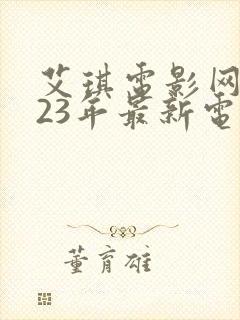 艾琪電影网
23年最新電
董育雄